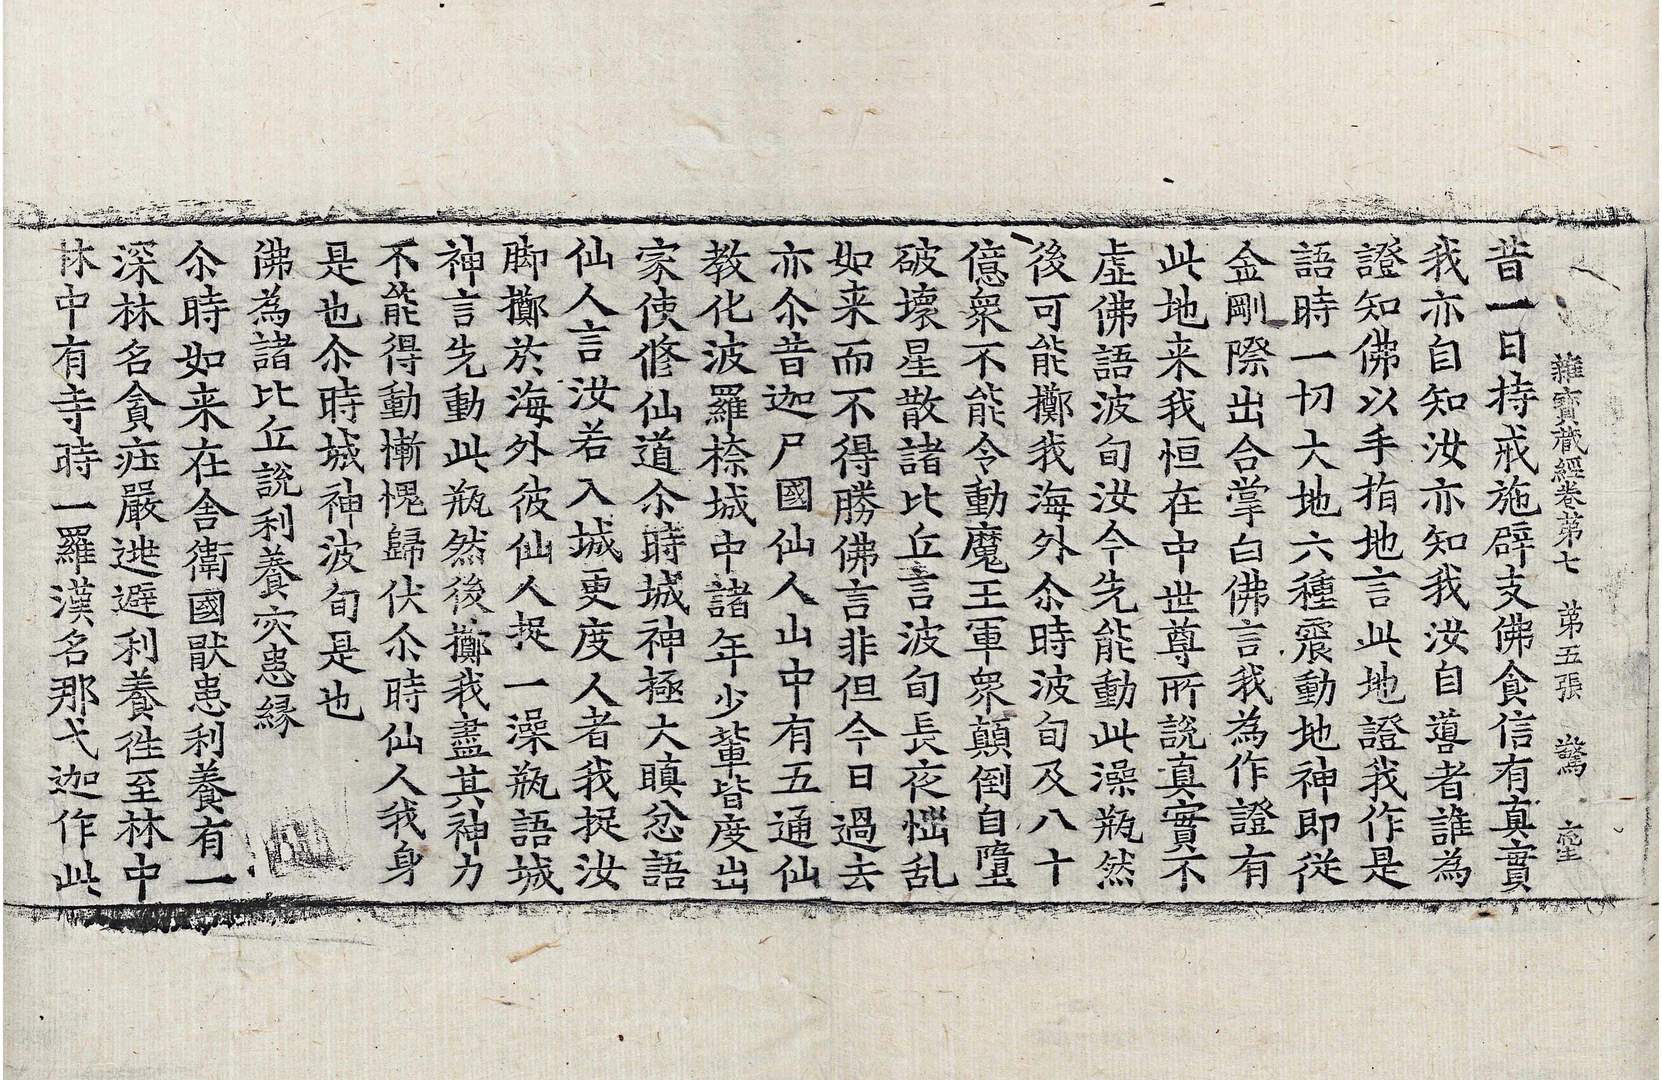 雜寶藏經卷第七 第五張 驚
昔一日持戒施辟支佛食信有真實
我亦自知汝亦知我汝自噵者誰為
證知佛以手指地言此地證我作是
語時一切大地六種震動地神即從
金剛際出合掌白佛言我為作證有
此地来我恒在中世尊所說真實不
虛佛語波旬汝今先能動此澡瓶然
後可能擲我海外尒時波旬及八十
億衆不能令動魔王軍衆顛倒自墮
破壞星散諸比丘言波旬長夜惱乱
如来而不得勝佛言非但今日過去
亦尒昔迦尸國仙人山中有五通仙
教化波羅㮈城中諸年少輩皆度出
家使修仙道尒時城神極大瞋忿語
仙人言汝若入城更度人者我捉汝
脚擲於海外彼仙人捉一澡瓶語城
神言先動此瓶然後擲我盡其神力
不能得動慚愧歸伏尒時仙人我身
是也尒時城神波旬是也
佛為諸比丘說利養灾患縁
尒時如来在舎衛國猒患利養有一
深林名貪庒嚴逃避利養徃至林中
林中有寺時一羅漢名那弋迦作此